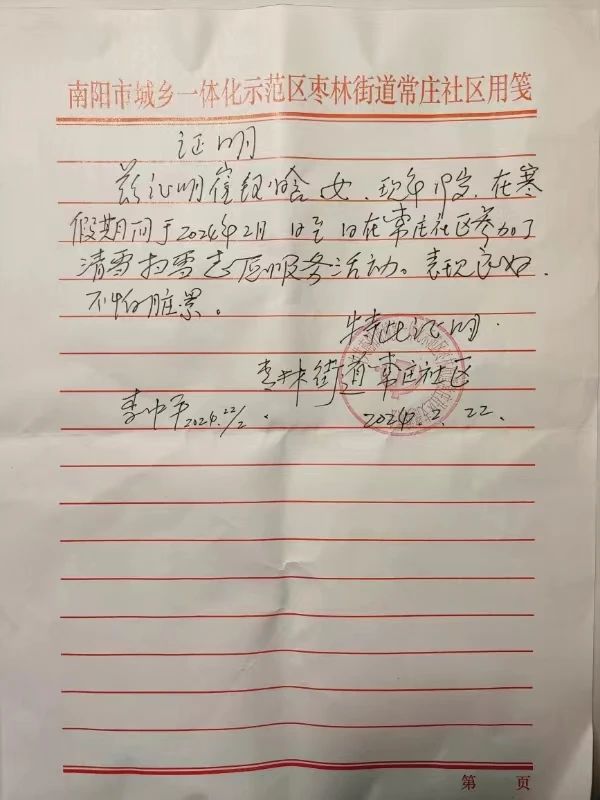 南阳市城乡一体化示范区枣林街道常庄社区用笺
证明
兹证明崔银晗 女、现年19岁、在寒
假期间于2024年2月 日至 日在常庄社区参加了
清雪扫雪志愿服务活动。表现良好、
不怕脏累。
特此证明.
枣林街道常庄社区
李中平2024.22/2.
2024.2.22.
第 页